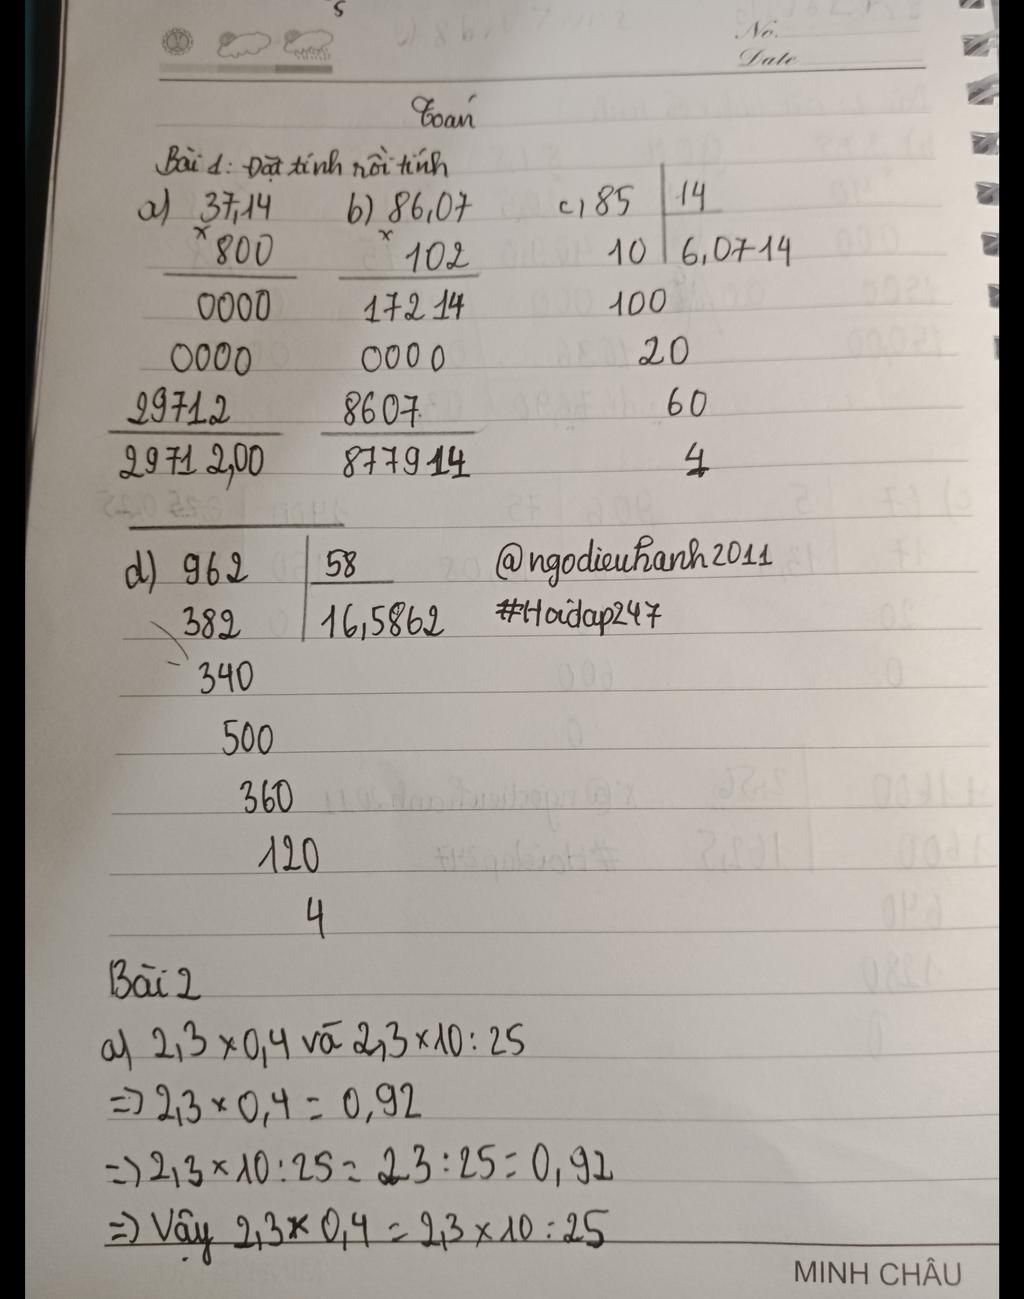 5
No.
Date
Toán
Bài 1: Đặt tính rồi tính
a) 37,14 b) 86,07 c) 85 14
x 800 x 102 10 6,0714
0000 172 14 100
0000 0000 20
29712 8607 60
2971 2,00 877914 4
d) 962 58 @ngodieuhanh2011
382 16,5862 #Hoidap247
340
500
360
120
4
Bài 2
a) 2,3 x 0,4 và 2,3 x 10 : 25
=> 2,3 x 0,4 = 0,92
=> 2,3 x 10 : 25 = 23 : 25 = 0,92
=> Vậy 2,3 x 0,4 = 2,3 x 10 : 25
MINH CHÂU